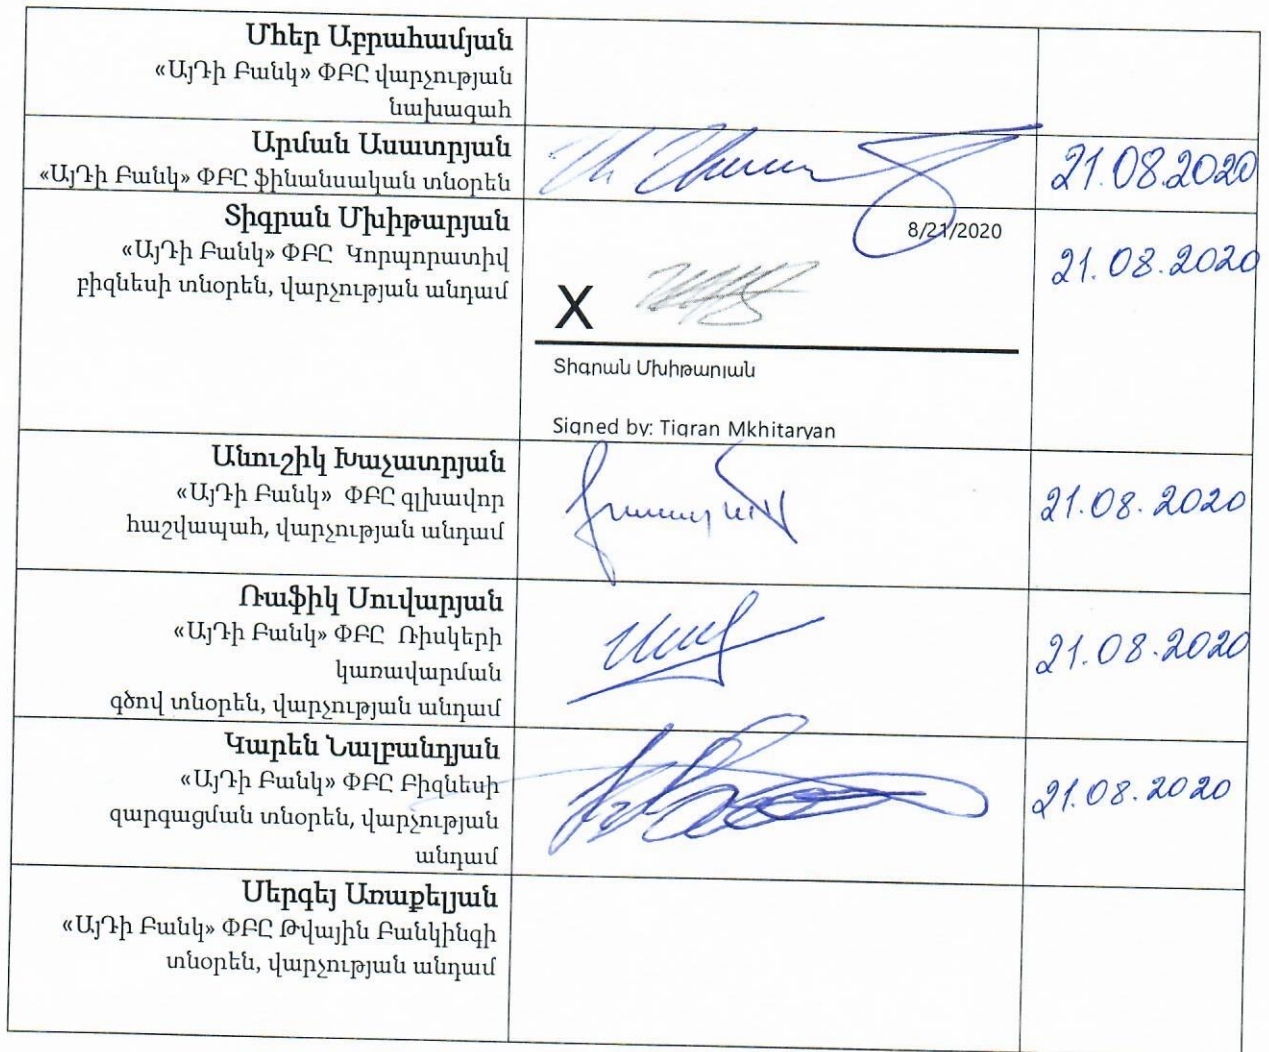 Մհեր Աբրահամյան
«ԱյԴի Բանկ» ՓԲԸ վարչության
նախագահ
Արման Ասատրյան
«ԱյԴի Բանկ» ՓԲԸ ֆինանսական տնօրեն
21.08.2020
Տիգրան Մխիթարյան
«ԱյԴի Բանկ» ՓԲԸ Կորպորատիվ
բիզնեսի տնօրեն, վարչության անդամ
8/21/2020
X
Տիգրան Մխիթարյան
Signed by: Tigran Mkhitaryan
21.08.2020
Անուշիկ Խաչատրյան
«ԱյԴի Բանկ» ՓԲԸ գլխավոր
հաշվապահ, վարչության անդամ
21.08.2020
Ռաֆիկ Սուվարյան
«ԱյԴի Բանկ» ՓԲԸ Ռիսկերի
կառավարման
գծով տնօրեն, վարչության անդամ
21.08.2020
Կարեն Նալբանդյան
«ԱյԴի Բանկ» ՓԲԸ Բիզնեսի
զարգացման տնօրեն, վարչության
անդամ
21.08.2020
Սերգեյ Առաքելյան
«ԱյԴի Բանկ» ՓԲԸ Թվային Բանկինգի
տնօրեն, վարչության անդամ